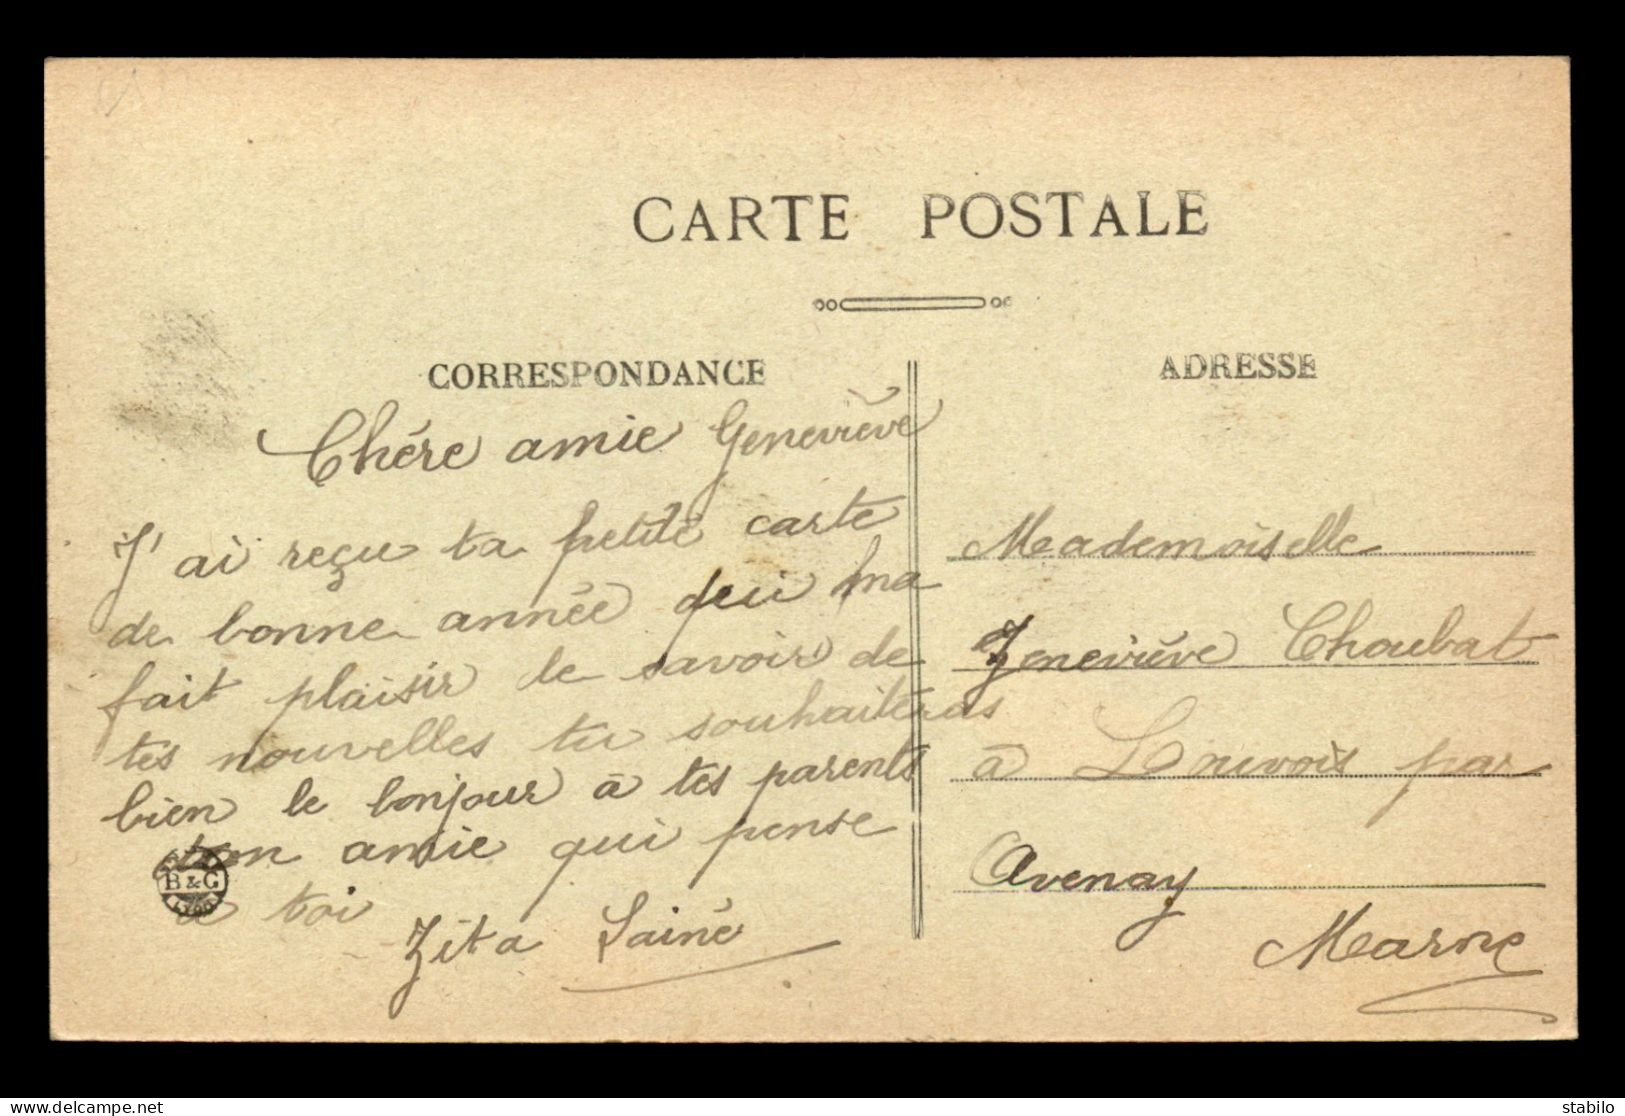 CARTE POSTALE
CORRESPONDANCE
ADRESSE
Chére amie Geneviève
J'ai reçu ta petite carte
de bonne année qui ma
fait plaisir de savoir de
tes nouvelles tu souhaiteras
bien le bonjour à tes parents
ton amie qui pense
a toi
Zita Lainé
B & G
Mademoiselle
Geneviève Choubat
à Louvois par
Avenay
Marne
www.delcampe.net
stabilo